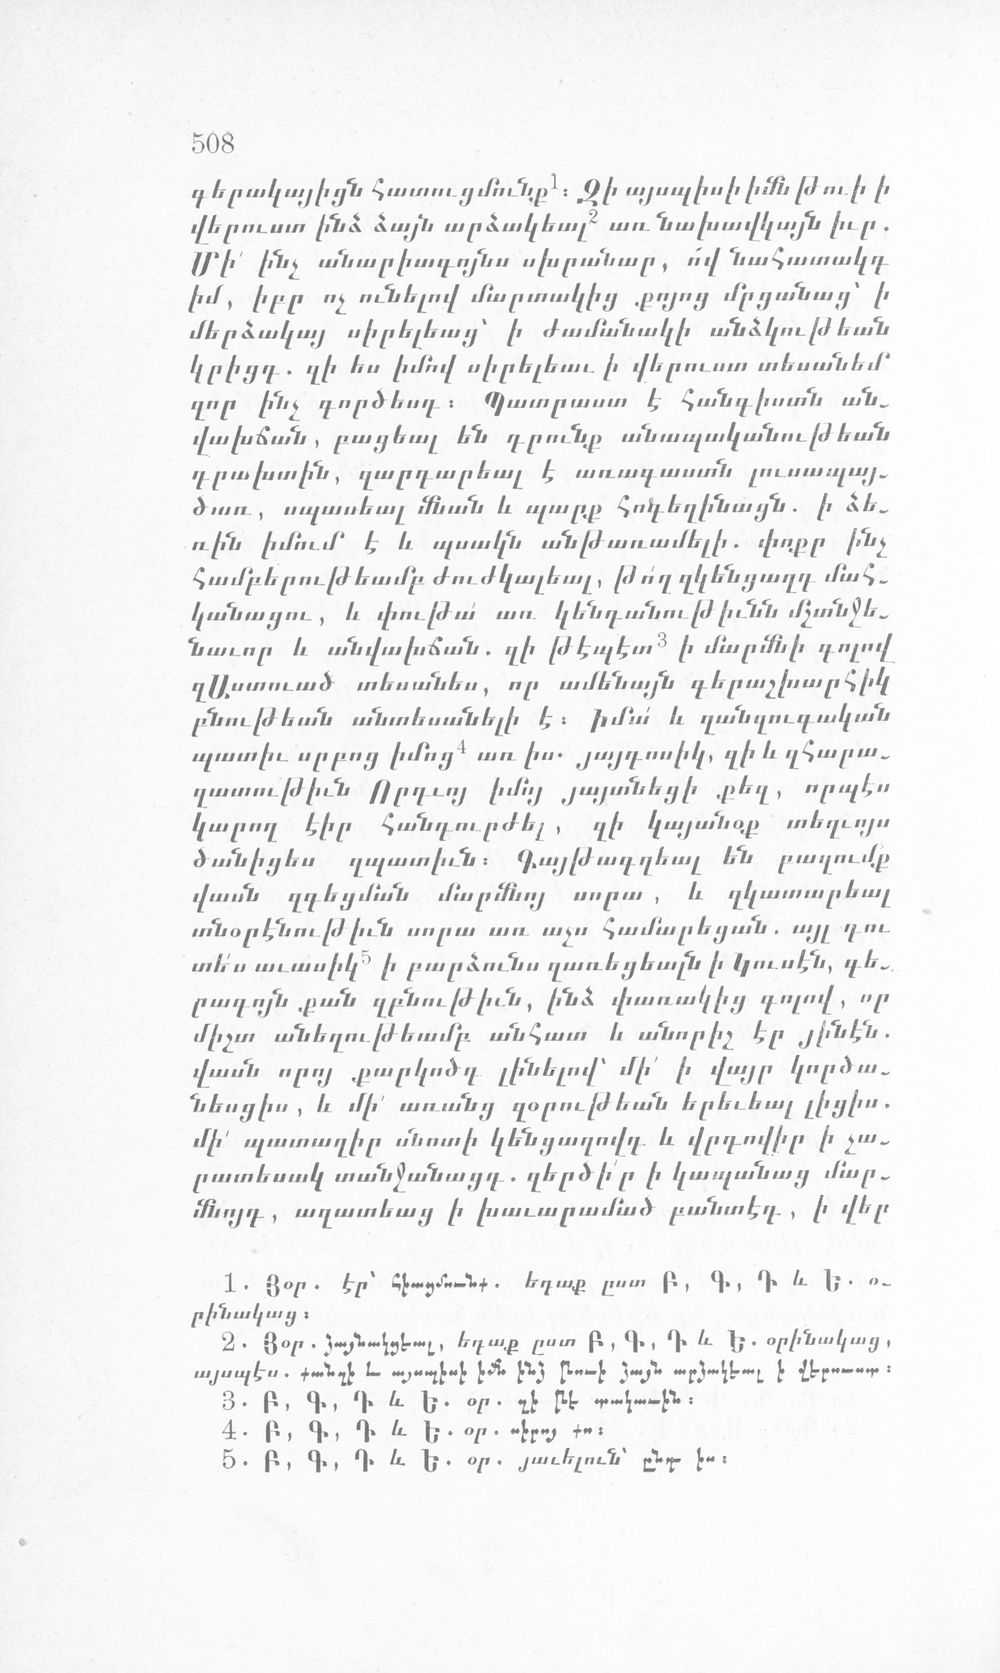 508
գերակայիցն հատուցմունք¹։ Զի այսպիսի իմն թուի ի
վերուստ ինձ ձայն արձակեալ² առ նախավկայն իւր.
Մի՛ ինչ անարիագոյնս սխրանար, ո՛վ նահատակդ
իմ, իբր ոչ ունելով մարտակից քոյոց մրցանաց՝ ի
մերձակայ սիրելեաց՝ ի ժամանակի անձկութեան
կրիցդ. զի ես իմով սիրելեաւ ի վերուստ տեսանեմ
զոր ինչ գործեսդ։ Պատրաստ է հանգիստն ան֊
վախճան, բացեալ են դրունք անապականութեան
դրախտին, զարդարեալ է առագաստն լուսապայ֊
ծառ, սպասեալ մնան և պարք հոգեղինացն. ի ձե֊
ռին իմում է և պսակն անթառամելի. փոքր ինչ
համբերութեամբ ժուժկալեալ, թո՛ղ զկենցաղդ մահ֊
կանացու, և փութա՛ առ կենդանութիւնն մշտնջե֊
նաւոր և անվախճան. զի թէպէտ³ ի մարմնի գոլով
զԱստուած տեսանես, որ ամենայն գերաշխարհիկ
բնութեան անտեսանելի է։ Իմա՛ և զանզուգական
պատիւ սրբոց իմոց⁴ առ իս. յայդոսիկ, զի և զհարա֊
զատութիւն Որդւոյ իմոյ յայտնեցի քեզ, որպէս
կարող էիր հանդուրժել, զի կայանօք տեղւոյս
ծանիցես զպատիւն։ Գայթագղեալ են բազումք
վասն զգեցման մարմնոյ սորա, և զկատարեալ
տնօրէնութիւն սորա առ աչս համարեցան. այլ դու
տե՛ս աւասիկ⁵ ի բարձունս զառեցեալն ի Կուսէն, գե֊
րագոյն քան զբնութիւն, ինձ փառակից գոլով, որ
միշտ անեղութեամբ անհատ և անորիշ էր յինէն.
վասն որոյ քարկոծդ լինելով՝ մի՛ ի վայր կործա֊
նեսցիս, և մի՛ առանց զօրութեան երեւեալ լիցիս.
մի՛ պատաղիր մնոտի կենցաղովդ և վրդովիր ի չա֊
րատեսակ տանջանացդ. զերծի՛ր ի կապանաց մար֊
մնոյդ, ազատեաց ի խաւարամած բանտէդ, ի վեր
1. Յօր. էր՝ հիացմունք. եդաք ըստ Բ, Գ, Դ և Ե. օ֊
րինակաց։
2. Յօր. ձայնակցեալ, եդաք ըստ Բ, Գ, Դ և Ե. օրինակաց,
այսպէս. քանզի և այսպիսի իմն ինձ թուի ձայն արձակեալ ի վերուստ։
3. Բ, Գ, Դ և Ե. օր. զի թէ տակաւին։
4. Բ, Գ, Դ և Ե. օր. սիրոյ քո։
5. Բ, Գ, Դ և Ե. օր. յաւելուն՝ ընդ իս։